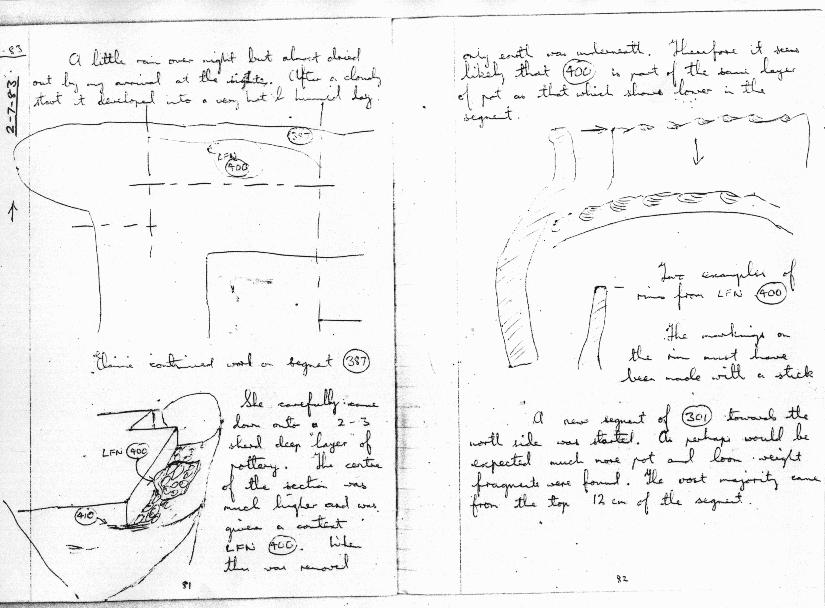 -83
2-7-83
A little rain over night but almost dried
out by my arrival at the site. (After a cloudy
start it developed into a very hot & humid day.
387
LFN
400
Elaine continued work on segment 387
She carefully came
down onto a 2-3
sherd deep "layer" of
pottery. The centre
of the section was
much higher and was
given a context
LFN 400. When
this was removed
LFN 400
410
81
only earth was underneath. Therefore it seems
likely that 400 is part of the same layer
of pot as that which shows lower in the
segment.
Two examples of
rims from LFN 400
The markings on
the rim must have
been made with a stick
A new segment of 301 towards the
north side was started. As perhaps would be
expected much more pot and loom weight
fragments were found. The vast majority came
from the top 12 cm of the segment.
82